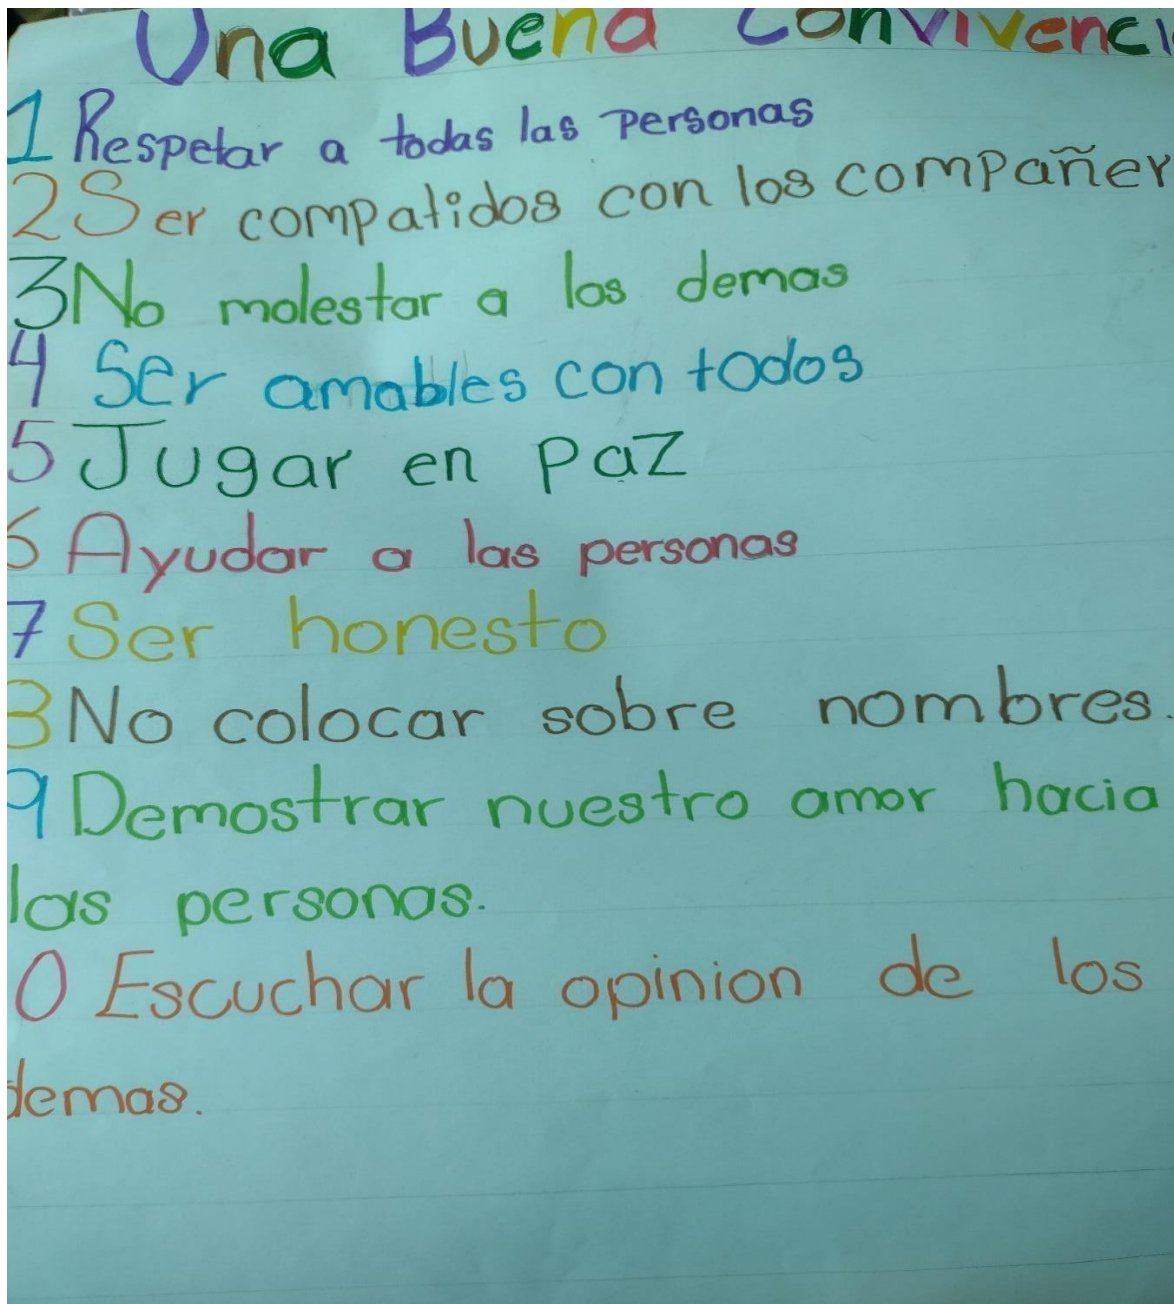 Una Buena Convivenci
1 Respetar a todas las personas
2 Ser compatidos con los compañer
3 No molestar a los demas
4 Ser amables con todos
5 Jugar en paz
6 Ayudar a las personas
7 Ser honesto
8 No colocar sobre nombres.
9 Demostrar nuestro amor hacia
las personas.
0 Escuchar la opinion de los
demas.